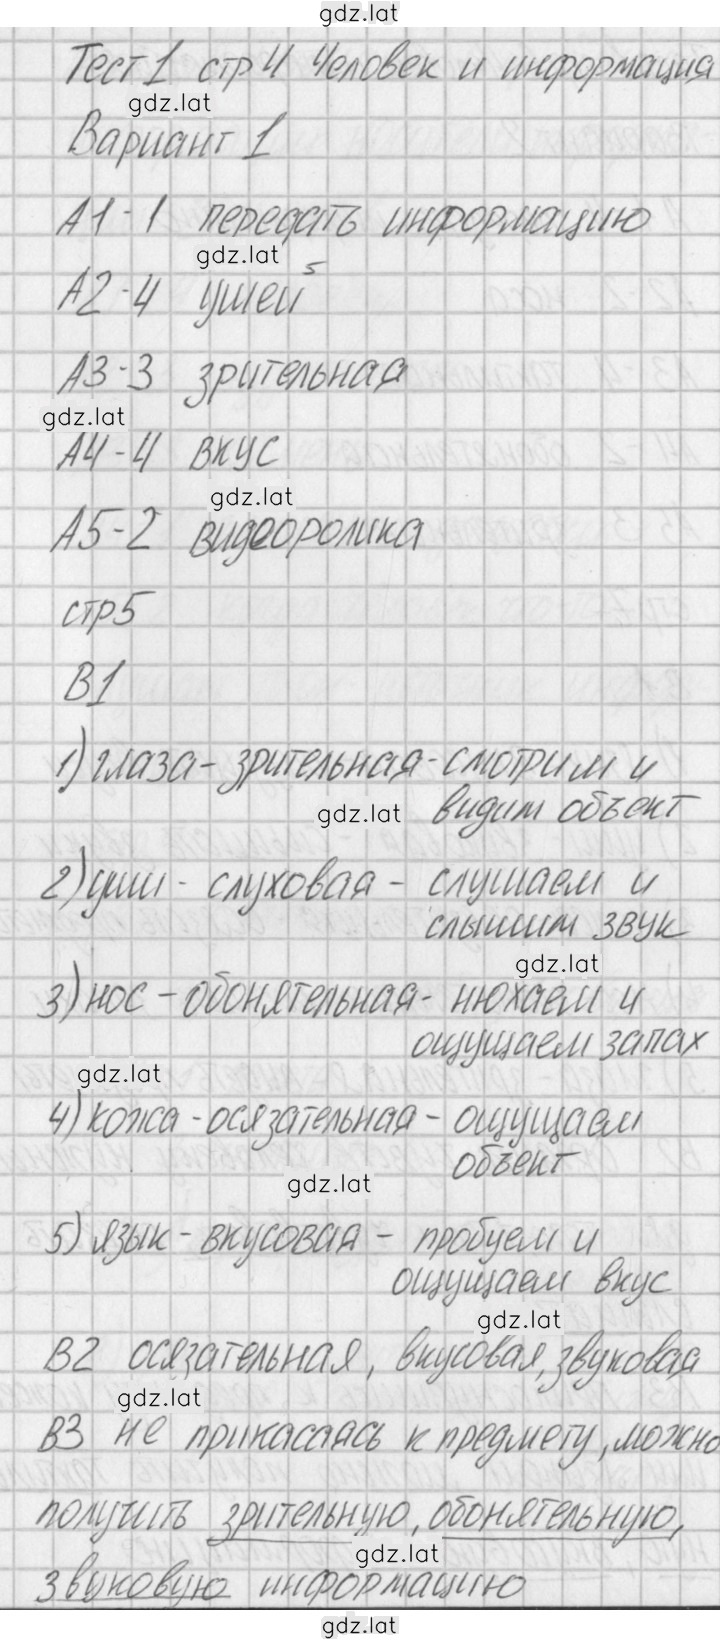 gdz.lat
Тест 1 стр 4 Человек и информация
gdz.lat
Вариант 1
А1-1 передать информацию
gdz.lat
А2-4 ушей
А3-3 зрительная
gdz.lat
А4-4 вкус
gdz.lat
А5-2 видеоролика
стр 5
В1
1) глаза - зрительная - смотрим и
gdz.lat видим объект
2) уши - слуховая - слушаем и
слышим звук
gdz.lat
3) нос - обонятельная - нюхаем и
ощущаем запах
gdz.lat
4) кожа - осязательная - ощущаем
объект
gdz.lat
5) язык - вкусовая - пробуем и
ощущаем вкус
gdz.lat
В2 осязательная, вкусовая, звуковая
gdz.lat
В3 не прикасаясь к предмету, можно
получить зрительную, обонятельную,
gdz.lat
звуковую информацию
gdz.lat